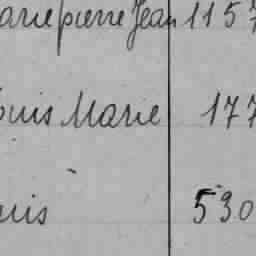 Marie pierre Jean 1157
Louis Marie 177
530